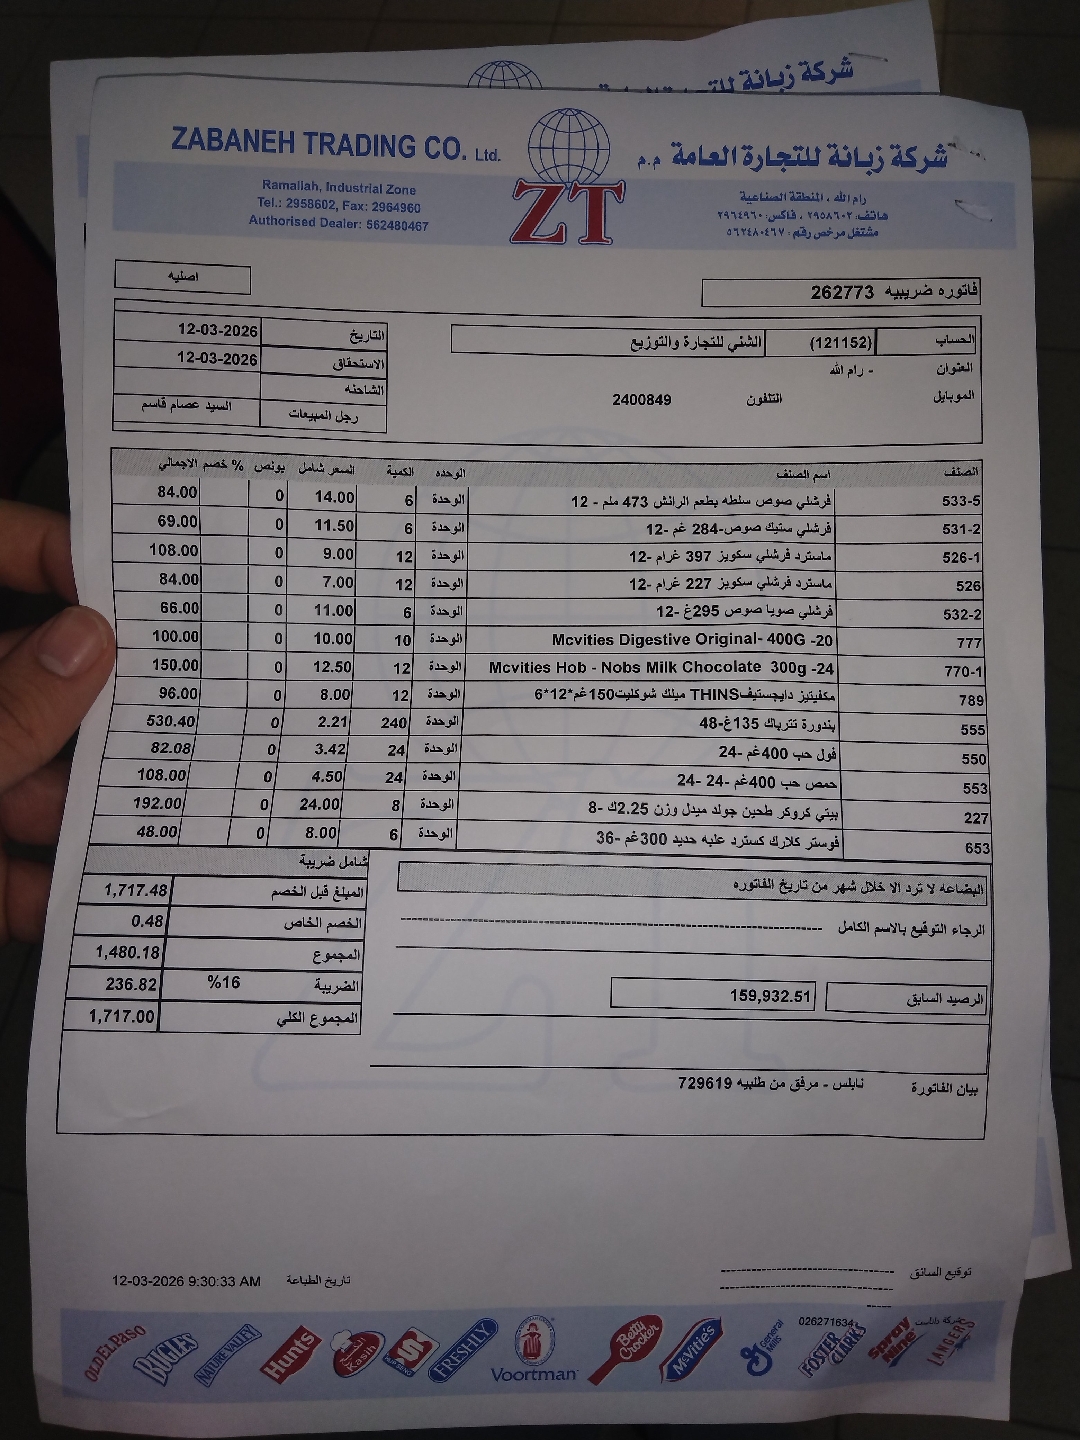 شركة زبانة للتجارة العامة
ZABANEH TRADING CO. Ltd.
شركة زبانة للتجارة العامة م.م
ZT
Ramallah, Industrial Zone
Tel.: 2958602, Fax: 2964960
Authorised Dealer: 562480467
رام الله ، المنطقة الصناعية
هاتف: ٢٩٥٨٦٠٢ ، فاكس: ٢٩٦٤٩٦٠
مشتغل مرخص رقم: ٥٦٢٤٨٠٤٦٧
اصليه
فاتوره ضريبيه 262773
الحساب (121152) الشني للتجارة والتوزيع
العنوان - رام الله
الموبايل التلفون 2400849
التاريخ 12-03-2026
الاستحقاق 12-03-2026
الشاحنه
رجل المبيعات السيد عصام قاسم
الصنف اسم الصنف الوحده الكمية السعر شامل بونص خصم % الاجمالي
533-5 فرشلي صوص سلطه بطعم الرانش 473 ملم - 12 الوحدة 6 14.00 0 84.00
531-2 فرشلي ستيك صوص-284 غم -12 الوحدة 6 11.50 0 69.00
526-1 ماسترد فرشلي سكويز 397 غرام -12 الوحدة 12 9.00 0 108.00
526 ماسترد فرشلي سكويز 227 غرام -12 الوحدة 12 7.00 0 84.00
532-2 فرشلي صويا صوص 295غ -12 الوحدة 6 11.00 0 66.00
777 Mcvities Digestive Original- 400G -20 الوحدة 10 10.00 0 100.00
770-1 Mcvities Hob - Nobs Milk Chocolate 300g -24 الوحدة 12 12.50 0 150.00
789 مكفيتيز دايجستيفTHINS ميلك شوكليت150غم*12*6 الوحدة 12 8.00 0 96.00
555 بندورة تترباك 135غ-48 الوحدة 240 2.21 0 530.40
550 فول حب 400غم -24 الوحدة 24 3.42 0 82.08
553 حمص حب 400غم -24 -24 الوحدة 24 4.50 0 108.00
227 بيتي كروكر طحين جولد ميدل وزن 2.25ك -8 الوحدة 8 24.00 0 192.00
653 فوستر كلارك كسترد علبه حديد 300غم -36 الوحدة 6 8.00 0 48.00
شامل ضريبة
المبلغ قبل الخصم 1,717.48
الخصم الخاص 0.48
المجموع 1,480.18
الضريبة %16 236.82
المجموع الكلي 1,717.00
البضاعه لا ترد الا خلال شهر من تاريخ الفاتوره
الرجاء التوقيع بالاسم الكامل
الرصيد السابق 159,932.51
بيان الفاتورة نابلس - مرفق من طلبيه 729619
توقيع السائق
تاريخ الطباعة 12-03-2026 9:30:33 AM
026271634
OLD EL PASO
BUGLES
NATURE VALLEY
Hunts
Kasih
FRESHLY
Voortman
Betty Crocker
McVitie's
General Mills
FOSTER CLARK'S
LANGERS